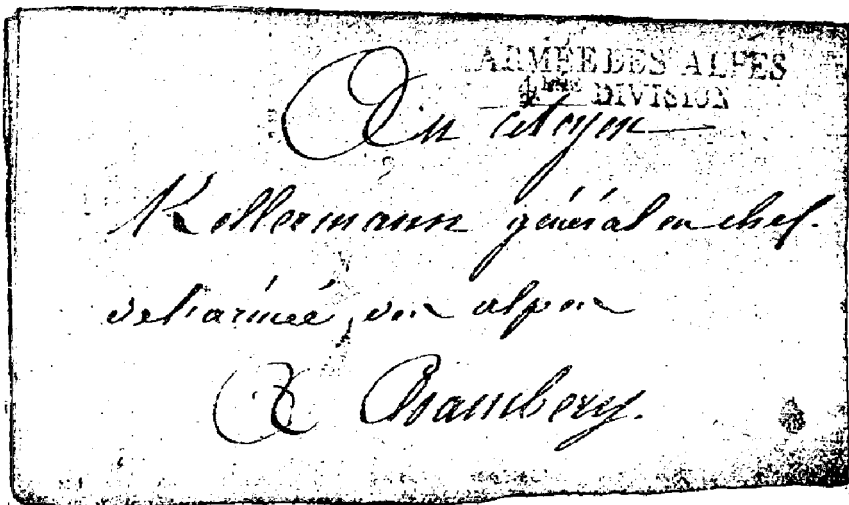 ARMÉE DES ALPES
4ME DIVISION
Au citoyen
Kellermann général en chef.
de l'armée des alpes
A Chambery.